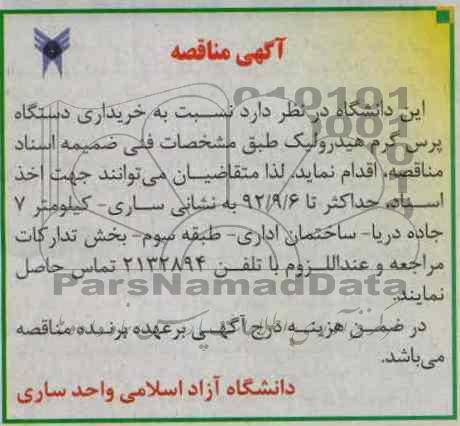 آگهی مناقصه
این دانشگاه در نظر دارد نسبت به خریداری دستگاه
پرس گرم هیدرولیک طبق مشخصات فنی ضمیمه اسناد
مناقصه، اقدام نماید. لذا متقاضیان می‌توانند جهت اخذ
اسناد، حداکثر تا ۹۲/۹/۶ به نشانی ساری- کیلومتر ۷
جاده دریا- ساختمان اداری- طبقه سوم- بخش تدارکات
مراجعه و عنداللزوم با تلفن ۲۱۳۲۸۹۴ تماس حاصل
ParsNamadData
نمایند.
در ضمن هزینه درج آگهی برعهده برنده مناقصه
می‌باشد.
دانشگاه آزاد اسلامی واحد ساری